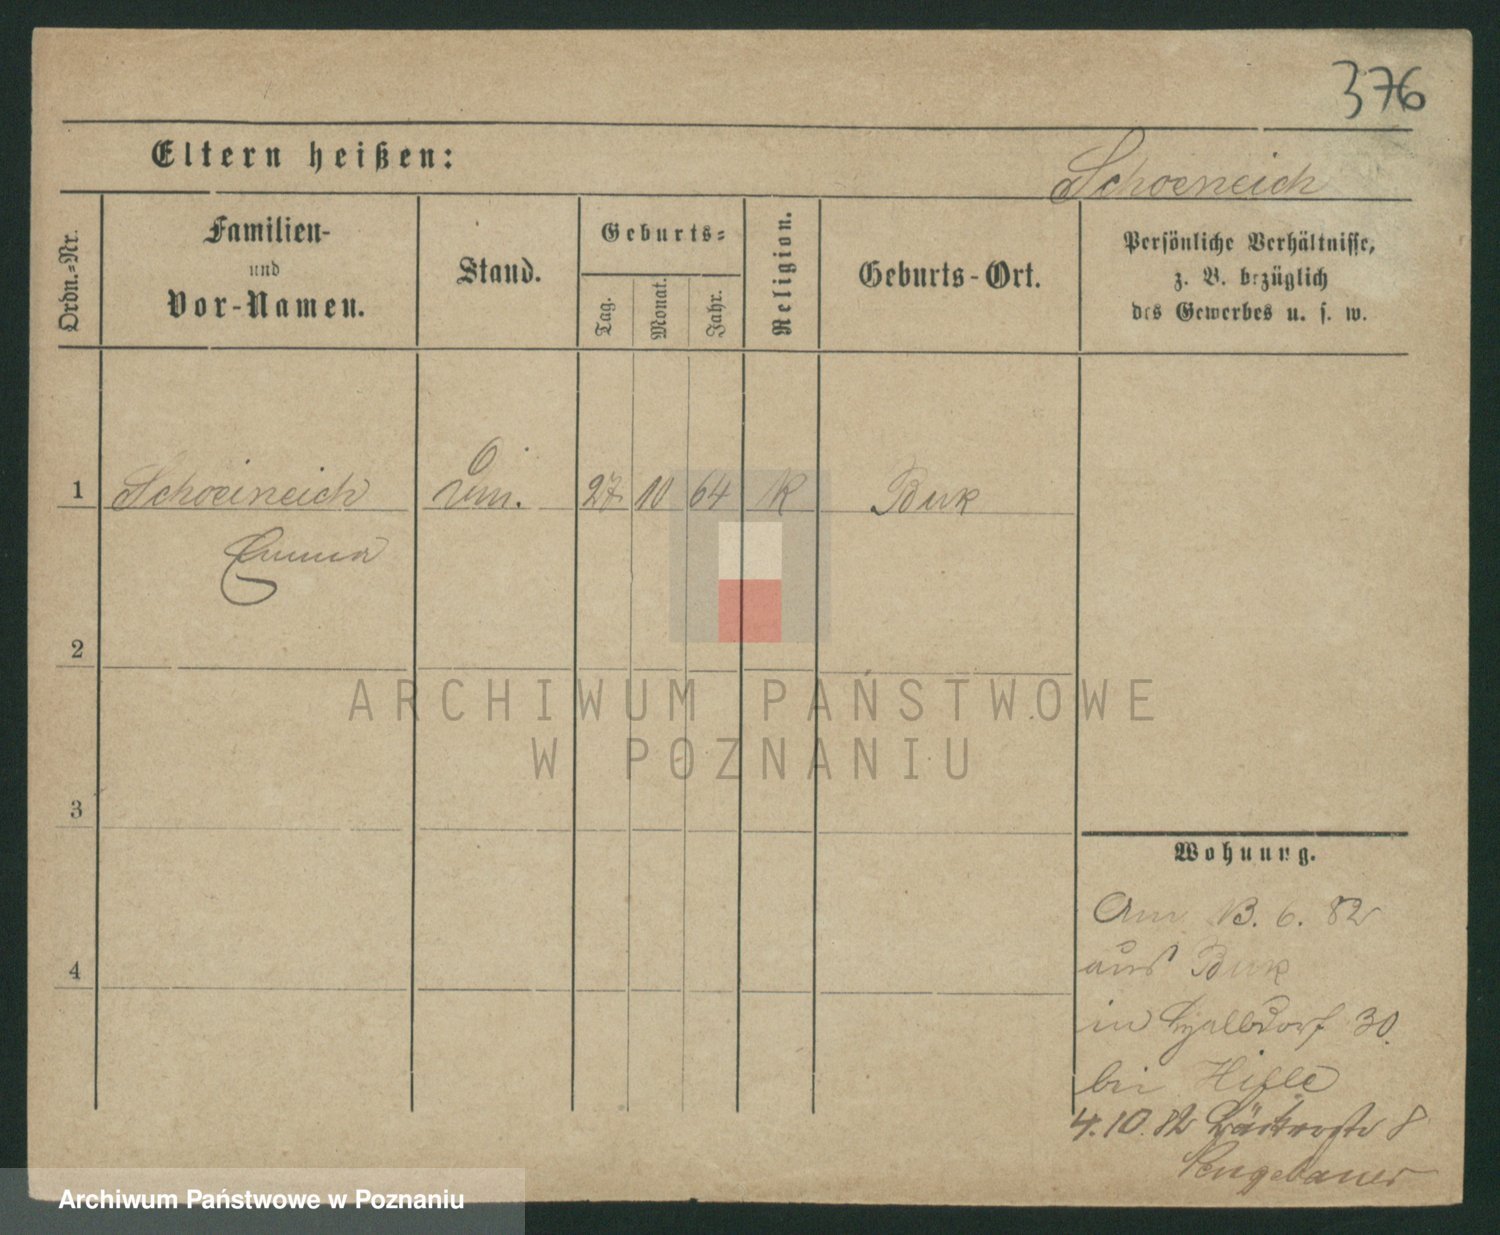 376
Eltern heißen:
Schoeneich
Ordn.-Nr.
Familien-
und
Vor-Namen.
Stand.
Geburts-
Tag.
Monat.
Jahr.
Religion.
Geburts-Ort.
Persönliche Verhältnisse,
z. B. bezüglich
des Gewerbes u. s. w.
1 Schoeineich 27 10 64 K Buk
Emma
2
ARCHIWUM PAŃSTWOWE
W POZNANIU
3
Wohnung.
Am 13. 6. 82
aus Buk
4
in 30.
bei Hille
4. 10. 82 8
Archiwum Państwowe w Poznaniu